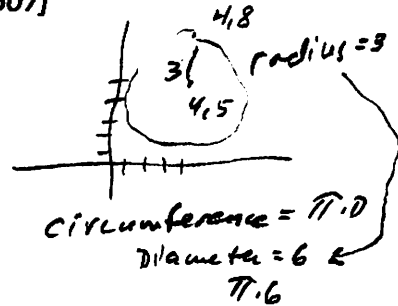 607]
4,8
radius = 3
3
4,5
circumference = π·D
Diameter = 6
π·6